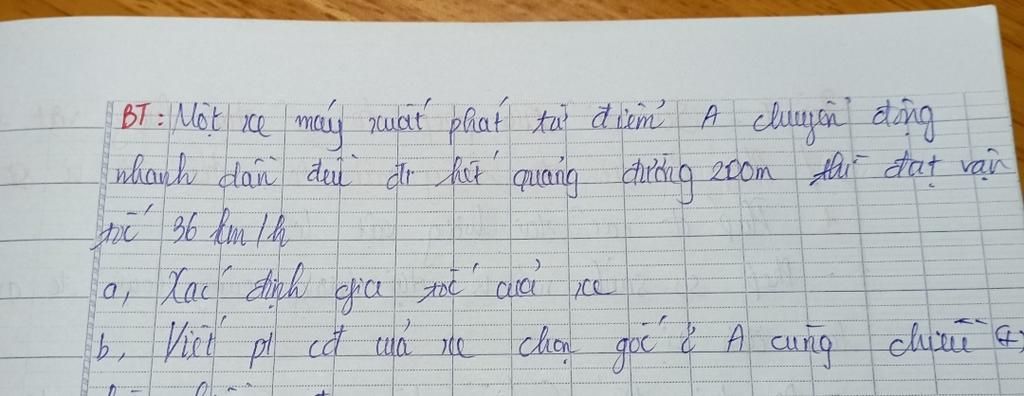 BT: Một xe máy xuất phát từ điểm A chuyển động
nhanh dần đều đi hết quãng đường 200m thì đạt vận
tốc 36 km/h
a, Xác định gia tốc của xe
b, Viết pt cđ của xe chọn gốc ở A cùng chiều (+)